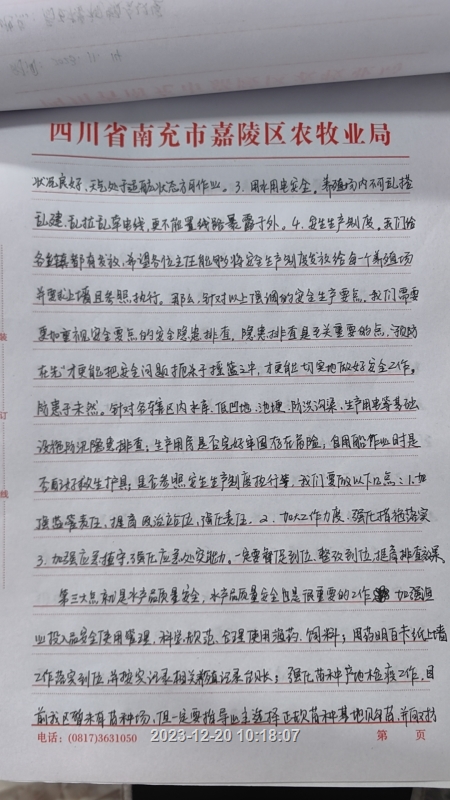 四川省南充市嘉陵区农牧业局
状况良好、天气处于适航状态方可作业。3.用水用电安全。养殖场内不可乱搭
乱建、乱拉乱牵电线,更不能置线路暴露于外。4.安全生产制度。我们给
各乡镇都有发放,希望各位主任能够将安全生产制度发放给每一个养殖场
并要求上墙且参照执行。那么,针对以上强调的安全生产要点,我们需要
更加重视安全要点的安全隐患排查,隐患排查是至关重要的点,"预防
在先"才更能把安全问题扼杀于摇篮之中,才更能切实地做好安全工作。
防患于未然。针对各辖区内水库、低凹地、池塘、防洪沟渠、生产用电等基础
设施防汛隐患排查;生产用房是否完好牢固存在危险;自用船作业时是
否有好救生护具;是否参照安全生产制度执行等,我们要做以下几点:1.加
强监管责任,提高政治站位,强化责任。2.加大工作力度,强化措施落实
3.加强应急值守,强化应急处突能力。一定要督促到位、整改到位,提高排查效果。
第三大点就是水产品质量安全,水产品质量安全也是很重要的工作 加强渔
业投入品安全使用管理,科学、规范、合理使用渔药、饲料;用药明白卡纸上墙
工作落实到位,并按实记录相关养殖记录台账;强化苗种产地检疫工作,目
前我区暂未有苗种场,但一定要指导业主选择正规苗种基地购苗,并向对
电话:(0817)3631050
第 页
2023-12-20 10:18:07
装
订
线